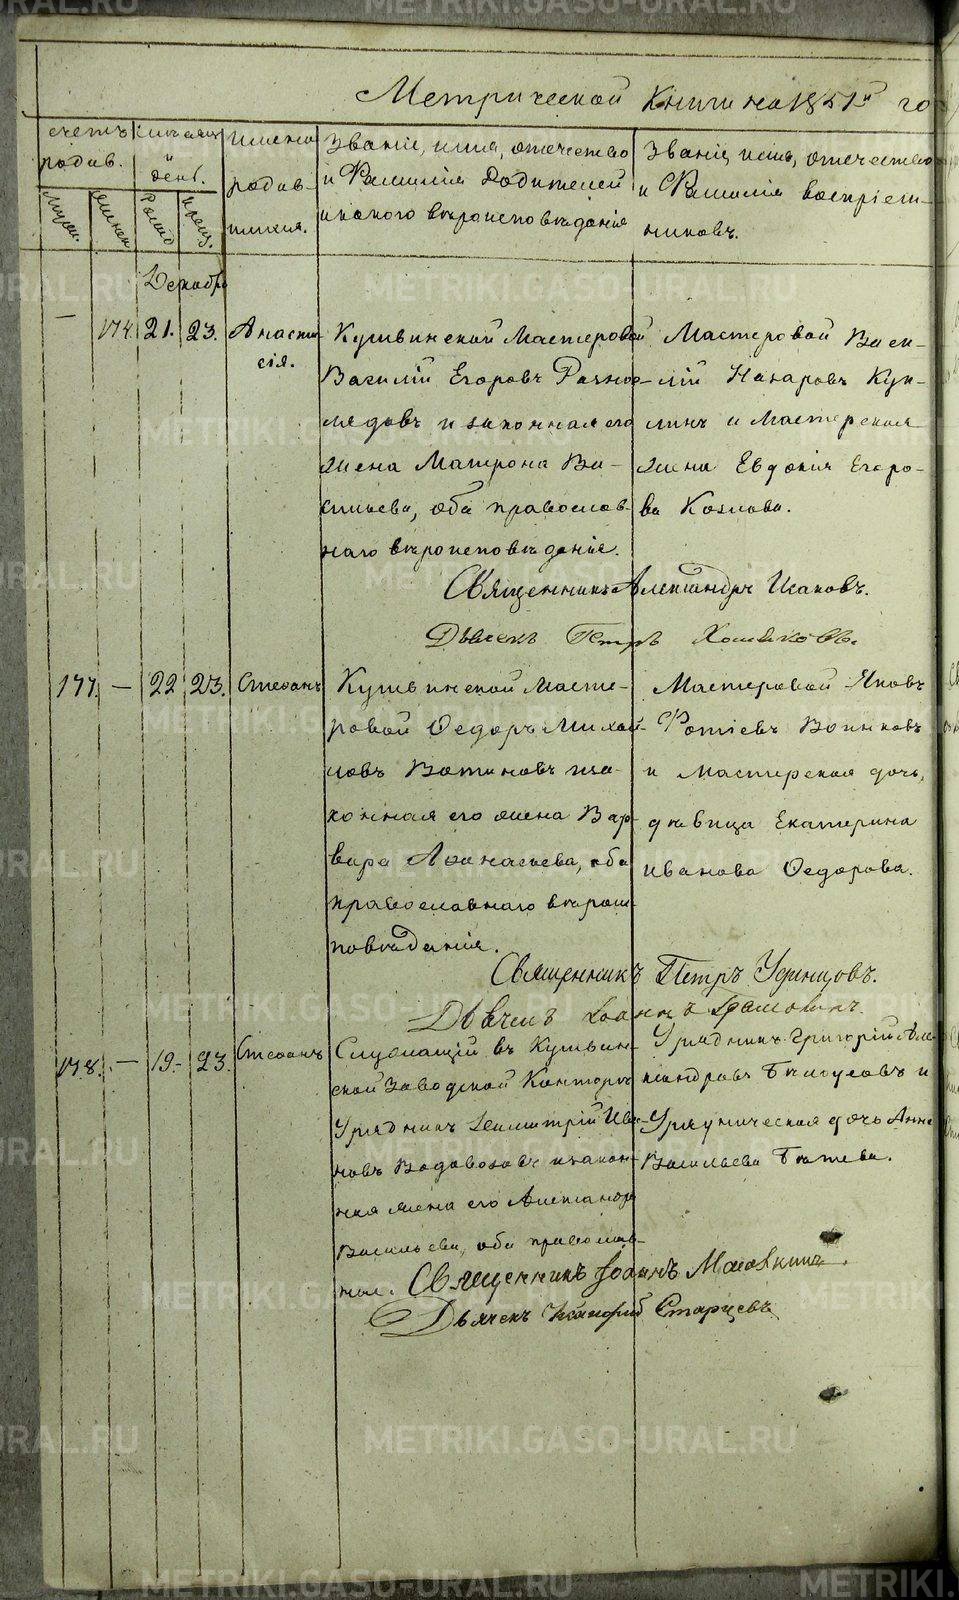 Метрической Книги на 1851й го
счетъ
родив.
Мѣсяцъ
и
день.
имена
родив-
шихся.
Званіе, имя, отечество
и Фамилія Родителей
и какого вѣроисповѣданія
Званія, имя, отечество
и Фамилія воспріем-
никовъ.
Мужес.
Женск.
Рожд
Крещ.
Декабрь
— 174. 21. 23. Анаста-
сія.
Кушвинской Мастеровой
Василій Егоровъ
и законная его
жена Матрона Ва-
сильева, оба православ-
наго вѣроисповѣданія.
Мастеровой Васи-
лій Назаровъ
и Мастерская
жена Евдокія Егоро-
ва Козлова.
Священникъ Александръ Исаковъ.
Дьячекъ Петръ Хомяковъ.
177. — 22 23. Стефанъ
Кушвинской Масте-
ровой Ѳедоръ Михай-
ловъ Ватиновъ и за-
конная его жена Вар-
вара Аѳанасьева, оба
православнаго вѣроис-
повѣданія.
Мастеровой Яковъ
Фотіевъ Воинковъ
и Мастерская дочь,
дѣвица Екатерина
Иванова Ѳедорова.
Священникъ Петръ Удинцовъ.
Дьячекъ Іоаннъ
178. — 19. 23. Стефанъ
Служащій въ Кушвин-
ской Заводской Конторѣ
Урядникъ Димитрій Ива-
новъ Водовозовъ и закон-
ная жена его Александра
Васильева, оба православ-
ные.
Урядникъ Григорій Але-
ксандровъ Бѣлоусовъ и
Урядническая дочь Анна
Васильева
Священникъ Іоаннъ
Дьячекъ Старцевъ
METRIKI.GASO-URAL.RU